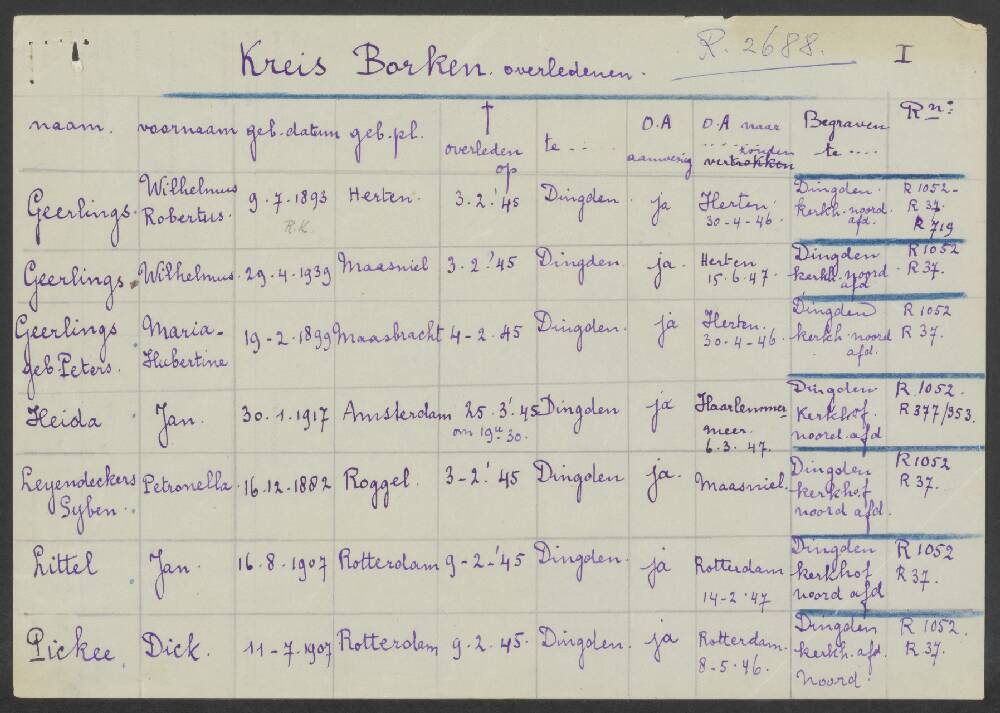 Kreis Borken. overledenen. R. 2688. I
naam. voornaam geb. datum geb. pl. † overleden op te .... O.A aanwezig O.A naar .... zonden vertrokken Begraven te .... R nº:
Geerlings. Wilhelmus Robertus. 9.7.1893 R.K. Herten. 3.2.'45 Dingden. ja Herten. 30-4-46. Dingden. kerkh. noord afd. R 1052- R 37. R 719
Geerlings. Wilhelmus. 29.4.1939 Maasniel 3-2.'45 Dingden. ja. Herten 15.6.47. Dingden kerkh. noord afd R 1052 R 37.
Geerlings geb Peters. Maria-Hubertine 19-2.1899 Maasbracht 4-2.45 Dingden. ja Herten. 30.4-46. Dingden kerkh. noord afd. R 1052 R 37.
Heida Jan. 30.1.1917 Amsterdam 25.3.'45 om 19u 30. Dingden ja Haarlemmermeer. 6.3.47. Dingden Kerkhof. noord. afd R 1052. R 377/953.
Leyendeckers Syben. Petronella. 16.12.1882 Roggel. 3-2.'45 Dingden ja. Maasniel. Dingden kerkhof noord afd. R 1052 R 37.
Littel Jan. 16.8.1907 Rotterdam 9-2-'45 Dingden. ja Rotterdam 14-2.47 Dingden kerkhof noord afd R 1052 R 37.
Pickee. Dick. 11-7.1907 Rotterdam 9.2.45. Dingden. ja Rotterdam. 8-5.46. Dingden kerkh. afd. noord. R 1052. R 37.